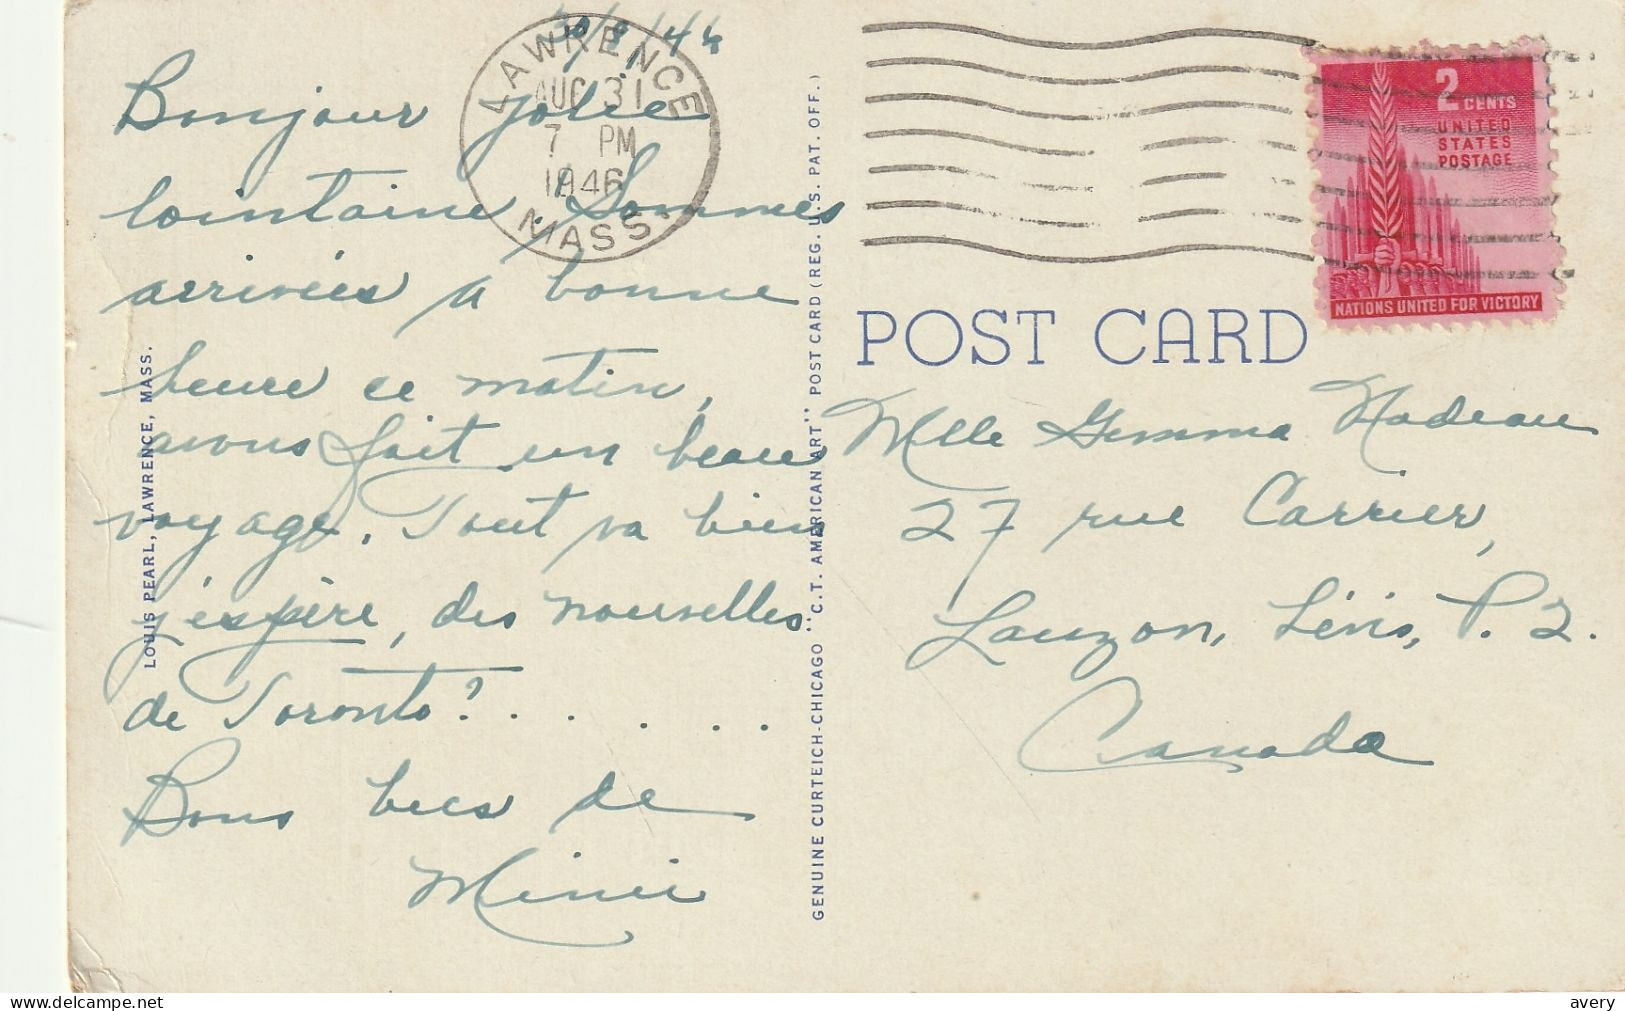 30/8/46
Bonjour Jolie
lointaine. Sommes
arrivées à bonne
heure ce matin,
avons fait un beau
voyage. Tout va bien
j'espère, des nouvelles
de Toronto? . . . . . .
Bons becs de
Mimi
LAWRENCE
AUG 31
7 PM
1946
MASS.
2 CENTS
UNITED
STATES
POSTAGE
NATIONS UNITED FOR VICTORY
POST CARD
Mlle Gemma Nadeau
27 rue Carrier,
Lauzon, Lévis, P. Q.
Canada
LOUIS PEARL, LAWRENCE, MASS.
GENUINE CURTEICH-CHICAGO "C.T. AMERICAN ART" POST CARD (REG. U.S. PAT. OFF.)
avery